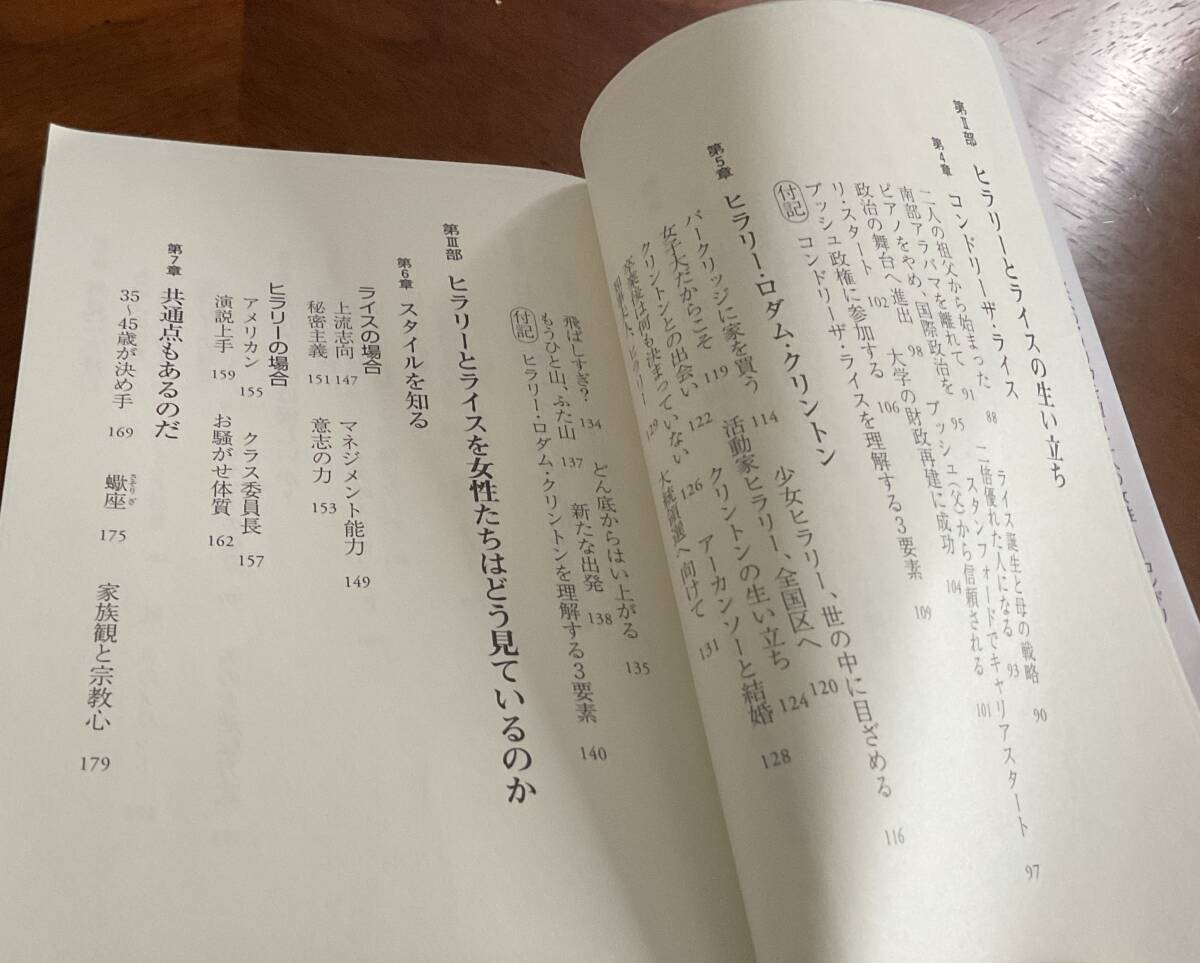 第Ⅱ部 ヒラリーとライスの生い立ち
第4章 コンドリーザ・ライス
二人の祖父から始まった 88 ライス誕生と母の戦略 90
南部アラバマを離れて 91 二倍優れた人になる 93
ピアノをやめ、国際政治を 95 スタンフォードでキャリアスタート 97
政治の舞台へ進出 98 ブッシュ(父)から信頼される 101
リ・スタート 102 大学の財政再建に成功 104
ブッシュ政権に参加する 106
付記 コンドリーザ・ライスを理解する3要素 109
第5章 ヒラリー・ロダム・クリントン
パークリッジに家を買う 114 少女ヒラリー、世の中に目ざめる 116
女子大だからこそ 119 活動家ヒラリー、全国区へ 120
クリントンとの出会い 122 クリントンの生い立ち 124
卒業後は何も決まっていない 126 アーカンソーと結婚 128
129 大統領選へ向けて 131
飛ばしすぎ? 134 どん底からはい上がる 135
もうひと山、ふた山 137 新たな出発 138
付記 ヒラリー・ロダム・クリントンを理解する3要素 140
第Ⅲ部 ヒラリーとライスを女性たちはどう見ているのか
第6章 スタイルを知る
ライスの場合
上流志向 147 マネジメント能力 149
秘密主義 151 意志の力 153
ヒラリーの場合
アメリカン 155 クラス委員長 157
演説上手 159 お騒がせ体質 162
第7章 共通点もあるのだ
35~45歳が決め手 169 蠍座 さそりざ 175 家族観と宗教心 179